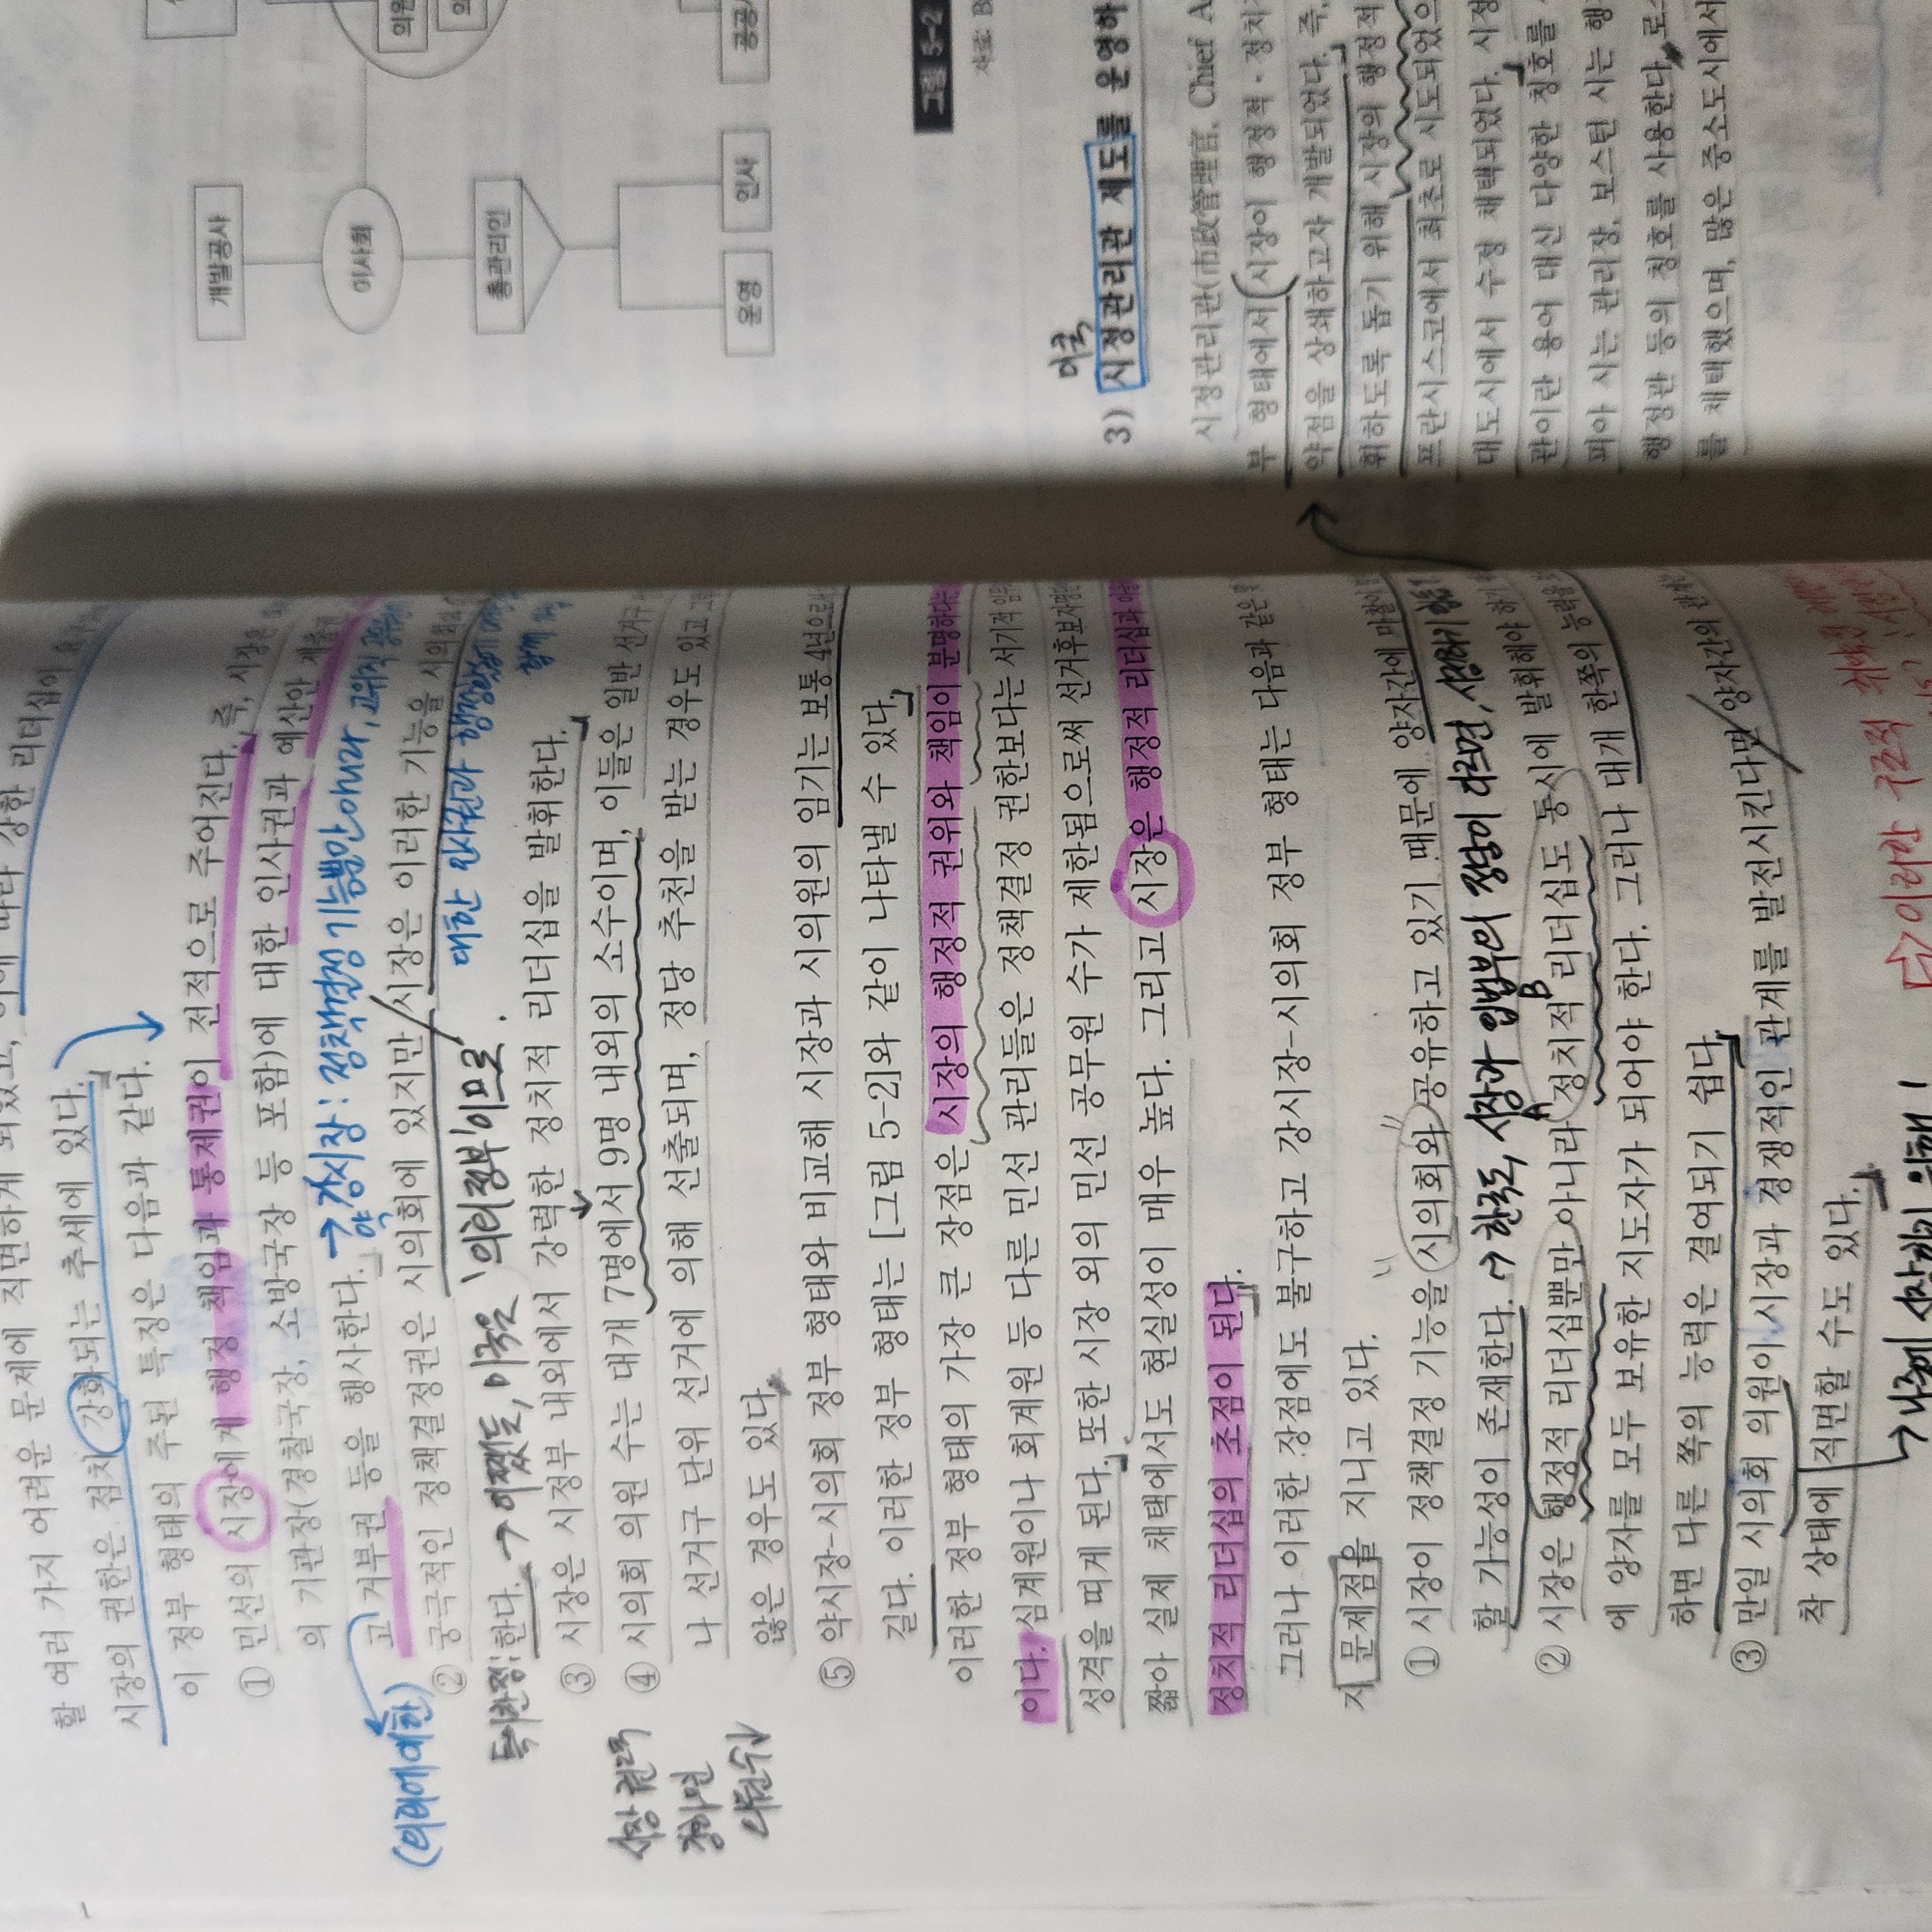 할 여러 가지 어려운 문제에 직면하게 되었고, 이에 따라 강한 리더십이
시장의 권한은 점차 강화되는 추세에 있다.
이 정부 형태의 주된 특징은 다음과 같다.
① 민선의 시장에게 행정 책임과 통제권이 전적으로 주어진다. 즉, 시장은
의 기관장(경찰국장, 소방국장 등 포함)에 대한 인사권과 예산안 제출권
고 거부권 등을 행사한다.
→ 강시장 : 정책결정 기능뿐만 아니라, 고위직
약
(의회에 대한)
② 궁극적인 정책결정권은 시의회에 있지만 시장은 이러한 기능을 시의회와
대한 인사권과
함께
특이한점: 한다. → 어쨌든, 미국은 '의회정부'이므로.
③ 시장은 시정부 내외에서 강력한 정치적 리더십을 발휘한다.
④ 시의회 의원 수는 대개 7명에서 9명 내외의 소수이며, 이들은 일반 선거구
나 선거구 단위 선거에 의해 선출되며, 정당 추천을 받는 경우도 있고
않은 경우도 있다.
시장 권력
강하면
의원수↓
⑤ 약시장-시의회 정부 형태와 비교해 시장과 시의원의 임기는 보통 4년으로서
길다. 이러한 정부 형태는 [그림 5-2]와 같이 나타낼 수 있다.
이러한 정부 형태의 가장 큰 장점은 시장의 행정적 권위와 책임이 분명하다는
이다. 심계원이나 회계원 등 다른 민선 관리들은 정책결정 권한보다는 서기적
성격을 띠게 된다. 또한 시장 외의 민선 공무원 수가 제한됨으로써 선거후보자명단
짧아 실제 채택에서도 현실성이 매우 높다. 그리고 시장은 행정적 리더십과
정치적 리더십의 초점이 된다.
그러나 이러한 장점에도 불구하고 강시장-시의회 정부 형태는 다음과 같은
지 문제점을 지니고 있다.
① 시장이 정책결정 기능을 시의회와 공유하고 있기 때문에 양자간에 마찰이
할 가능성이 존재한다. → 한국도, 시장과 입법부의 정당이 다르면,
A B
② 시장은 행정적 리더십뿐만 아니라 정치적 리더십도 동시에 발휘해야 하기
에 양자를 모두 보유한 지도자가 되어야 한다. 그러나 대개 한쪽의 능력을
하면 다른 쪽의 능력은 결여되기 쉽다.
③ 만일 시의회 의원이 시장과 경쟁적인 관계를 발전시킨다면 양자간의 관계는
착 상태에 직면할 수도 있다.
→ 나중에 시장하기 위해!
⇨ 이러한 구조적 취약점
개발공사
이사회
총관리인
운영
인사
그림 5-2
자료: B
미국
3) 시정관리관 제도를 운영하
시정관리관(市政管理官, Chief A
부 형태에서 시장이 행정적·정치
약점을 상쇄하고자 개발되었다. 즉,
휘하도록 돕기 위해 시장의 행정적
프란시스코에서 최초로 시도되었으
대도시에서 수정 채택되었다. 시정
관이란 용어 대신 다양한 칭호를
피아 시는 관리장, 보스턴 시는 행
행정관 등의 칭호를 사용한다. 로스
를 채택했으며, 많은 중소도시에서